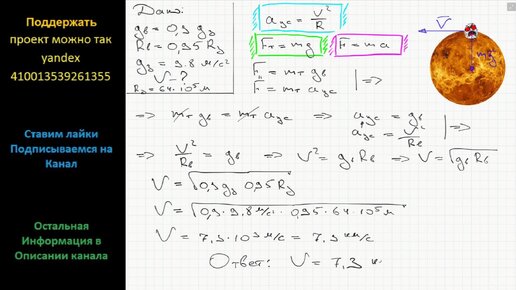 Поддержать
проект можно так
yandex
410013539261355
Ставим лайки
Подписываемся на
Канал
Остальная
Информация в
Описании канала
Дано:
gв = 0,9 gз
Rв = 0,95 Rз
gз = 9.8 м/с²
V - ?
Rз = 64·10⁵ м
aцс = V²/R
Fт = mg
F = ma
V
mg
Fт = mт gв
F = mт aцс
| =>
=> mт gв = mт aцс => aцс = gв
aцс = V²/Rв | =>
=> V²/Rв = gв => V² = gв Rв => V = √gв Rв
V = √0,9 gз 0,95 Rз
V = √0,9 · 9,8 м/с² · 0,95 · 64·10⁵ м
V = 7,3 · 10³ м/с = 7,3 км/с
Ответ: V = 7,3 к